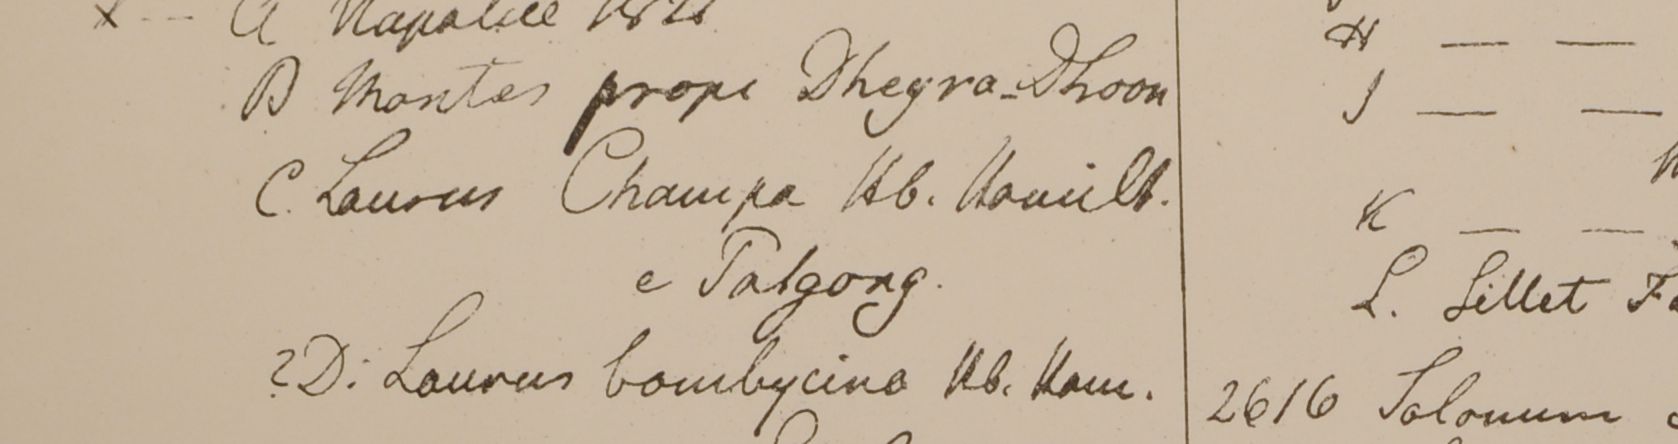 x -- A Napalia 1821
B Montes prope Dheyra-Dhoon
C. Laurus Champa Hb. Hamilt.
e Palgong.
?D: Laurus bombycina Hb. Ham.
H — —
J — —
K — —
L. Sillet
2616 Solanum